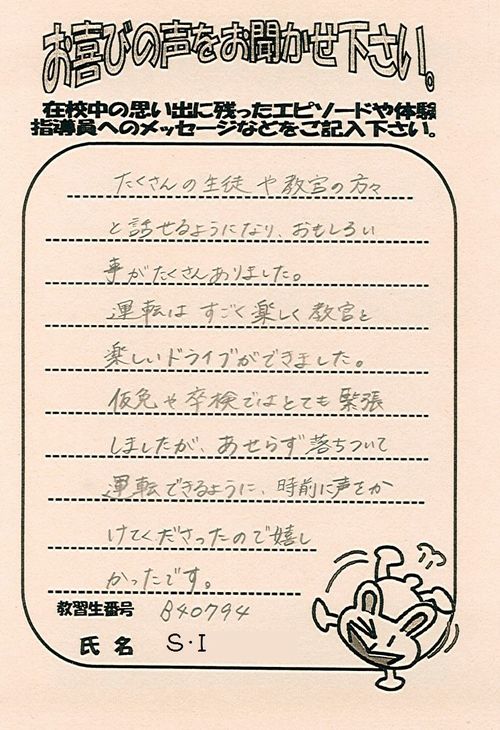 お喜びの声をお聞かせ下さい。
在校中の思い出に残ったエピソードや体験
指導員へのメッセージなどをご記入下さい。
たくさんの生徒や教官の方々
と話せるようになり、おもしろい
事がたくさんありました。
運転はすごく楽しく教官と
楽しいドライブができました。
仮免や卒検ではとても緊張
しましたが、あせらず落ちついて
運転できるように、時前に声をか
けてくださったので嬉し
かったです。
教習生番号 B40794
氏名 S・I